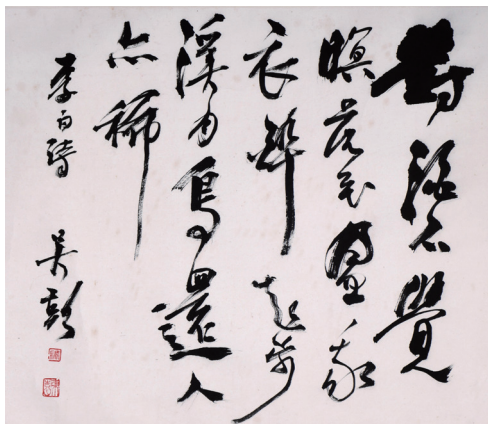 對酒不覺
暝落花盈我
衣醉起步
溪月鳥還人
亦稀
李白詩 吳彭